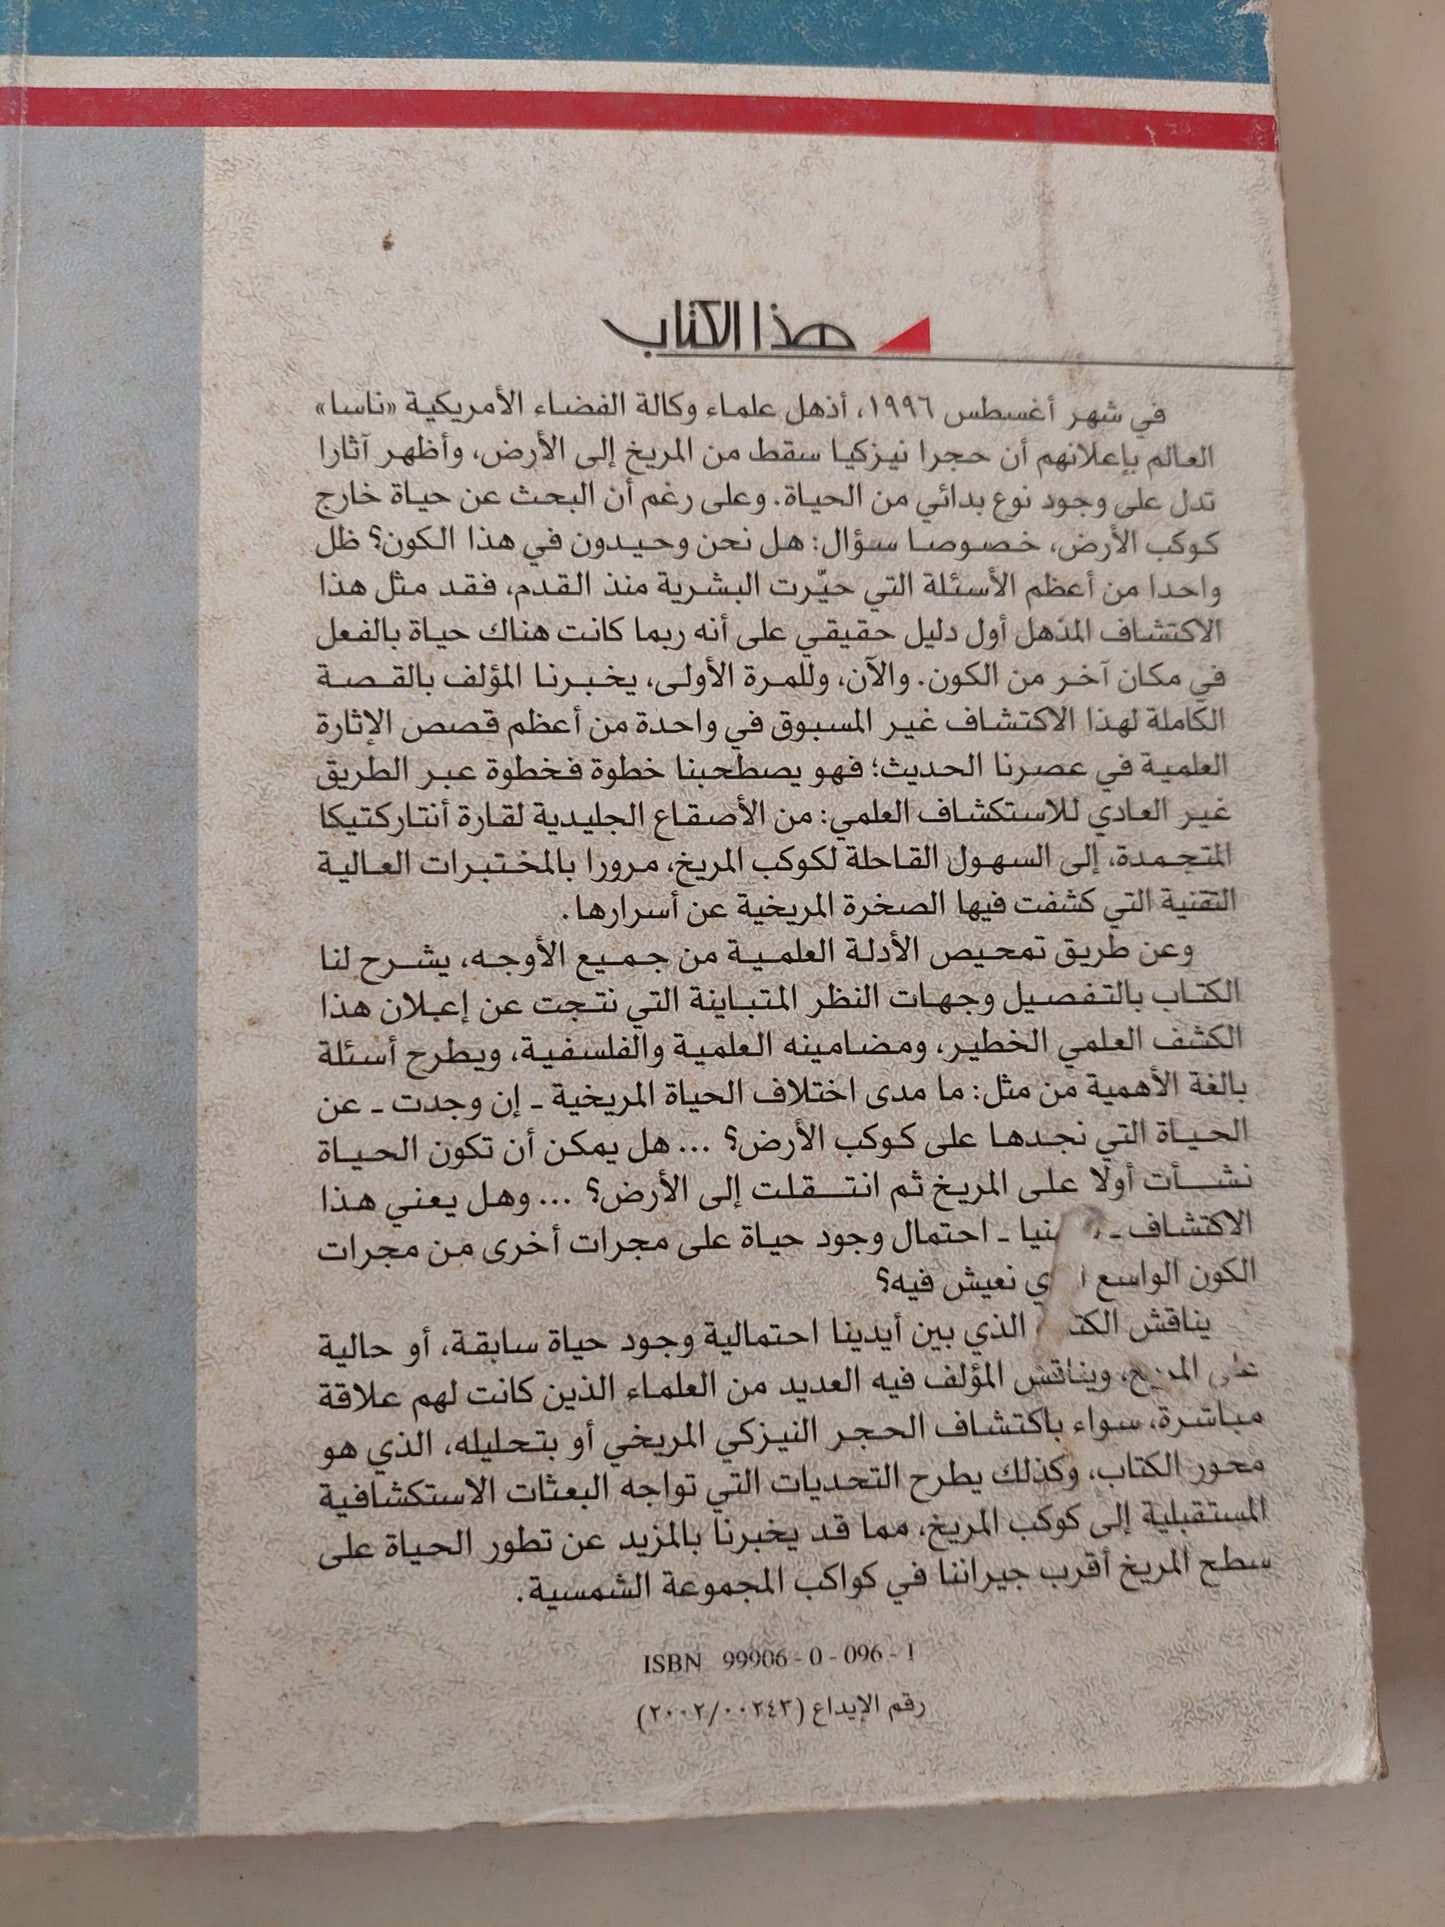 هذا الكتاب
في شهر أغسطس ١٩٩٦، أذهل علماء وكالة الفضاء الأمريكية «ناسا»
العالم بإعلانهم أن حجرا نيزكيا سقط من المريخ إلى الأرض، وأظهر آثارا
تدل على وجود نوع بدائي من الحياة. وعلى رغم أن البحث عن حياة خارج
كوكب الأرض، خصوصا سؤال: هل نحن وحيدون في هذا الكون؟ ظل
واحدا من أعظم الأسئلة التي حيّرت البشرية منذ القدم، فقد مثل هذا
الاكتشاف المذهل أول دليل حقيقي على أنه ربما كانت هناك حياة بالفعل
في مكان آخر من الكون. والآن، وللمرة الأولى، يخبرنا المؤلف بالقصة
الكاملة لهذا الاكتشاف غير المسبوق في واحدة من أعظم قصص الإثارة
العلمية في عصرنا الحديث؛ فهو يصطحبنا خطوة فخطوة عبر الطريق
غير العادي للاستكشاف العلمي: من الأصقاع الجليدية لقارة أنتاركتيكا
المتجمدة، إلى السهول القاحلة لكوكب المريخ، مرورا بالمختبرات العالية
التقنية التي كشفت فيها الصخرة المريخية عن أسرارها.
وعن طريق تمحيص الأدلة العلمية من جميع الأوجه، يشرح لنا
الكتاب بالتفصيل وجهات النظر المتباينة التي نتجت عن إعلان هذا
الكشف العلمي الخطير، ومضامينه العلمية والفلسفية، ويطرح أسئلة
بالغة الأهمية من مثل: ما مدى اختلاف الحياة المريخية ـ إن وجدت ـ عن
الحياة التي نجدها على كوكب الأرض؟ ... هل يمكن أن تكون الحياة
نشأت أولا على المريخ ثم انتقلت إلى الأرض؟ ... وهل يعني هذا
الاكتشاف ـ ـ احتمال وجود حياة على مجرات أخرى من مجرات
الكون الواسع نعيش فيه؟
يناقش الذي بين أيدينا احتمالية وجود حياة سابقة، أو حالية
على المريخ، ويناقش المؤلف فيه العديد من العلماء الذين كانت لهم علاقة
مباشرة، سواء باكتشاف الحجر النيزكي المريخي أو بتحليله، الذي هو
محور الكتاب، وكذلك يطرح التحديات التي تواجه البعثات الاستكشافية
المستقبلية إلى كوكب المريخ، مما قد يخبرنا بالمزيد عن تطور الحياة على
سطح المريخ أقرب جيراننا في كواكب المجموعة الشمسية.
ISBN 99906 - 0 - 096 - 1
رقم الإيداع (٢٠٠٢/٠٠٢٤٣)